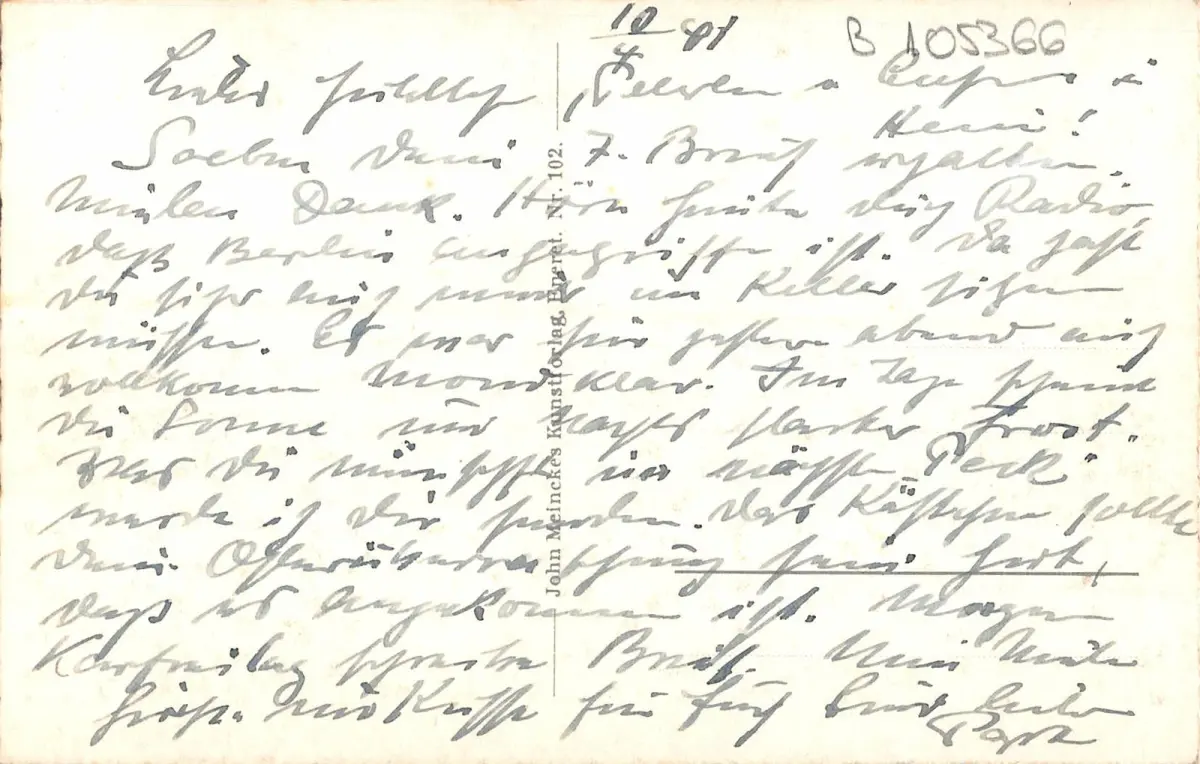 10/4 41
B 105366
Heini!
Soeben Dein 7. Brief erhalten.
Vielen Dank. Höre heute durch Radio,
dass Berlin angegriffen ist. Da hast
Du sicher auch wieder im Keller sitzen
müssen. Es war hier gestern abend auch
vollkommen Mondklar. Im Tage scheint
die Sonne und nachts starker Frost.
Was Du wünschst im nächsten Pack
werde ich Dir senden. Das Kästchen sollte
Dein Osterüberraschung sein. Gut,
dass es angekommen ist. Morgen
Karfreitag schreibe Brief. Nun viele
Grüße und Küsse für
John Meinckes Kunstverlag, Eperet. Nr. 102.